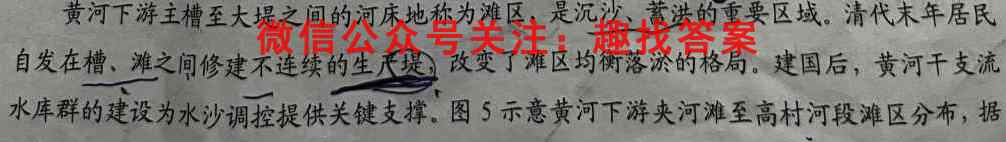 黄河下游主槽至大堤之间的河床地称为滩区，是沉沙、蓄洪的重要区域。清代末年居民
微信公众号关注：趣找答案
自发在槽、滩之间修建不连续的生产堤，改变了滩区均衡落淤的格局。建国后，黄河干支流
水库群的建设为水沙调控提供关键支撑。图 5 示意黄河下游夹河滩至高村河段滩区分布，据